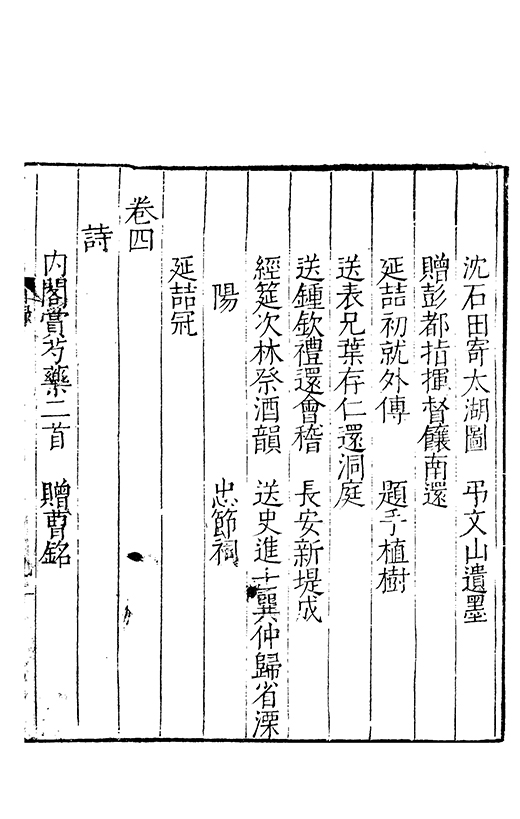 沈石田寄太湖圖　弔文山遺墨
贈彭都指揮督饟南還
延喆初就外傳　題手植樹
送表兄葉存仁還洞庭
送鍾欽禮還會稽　長安新堤成
經筵次林祭酒韻　送史進士巽仲歸省溧
陽　忠節祠
延喆冠
卷四
詩
内閣賞芍藥二首　贈曹銘